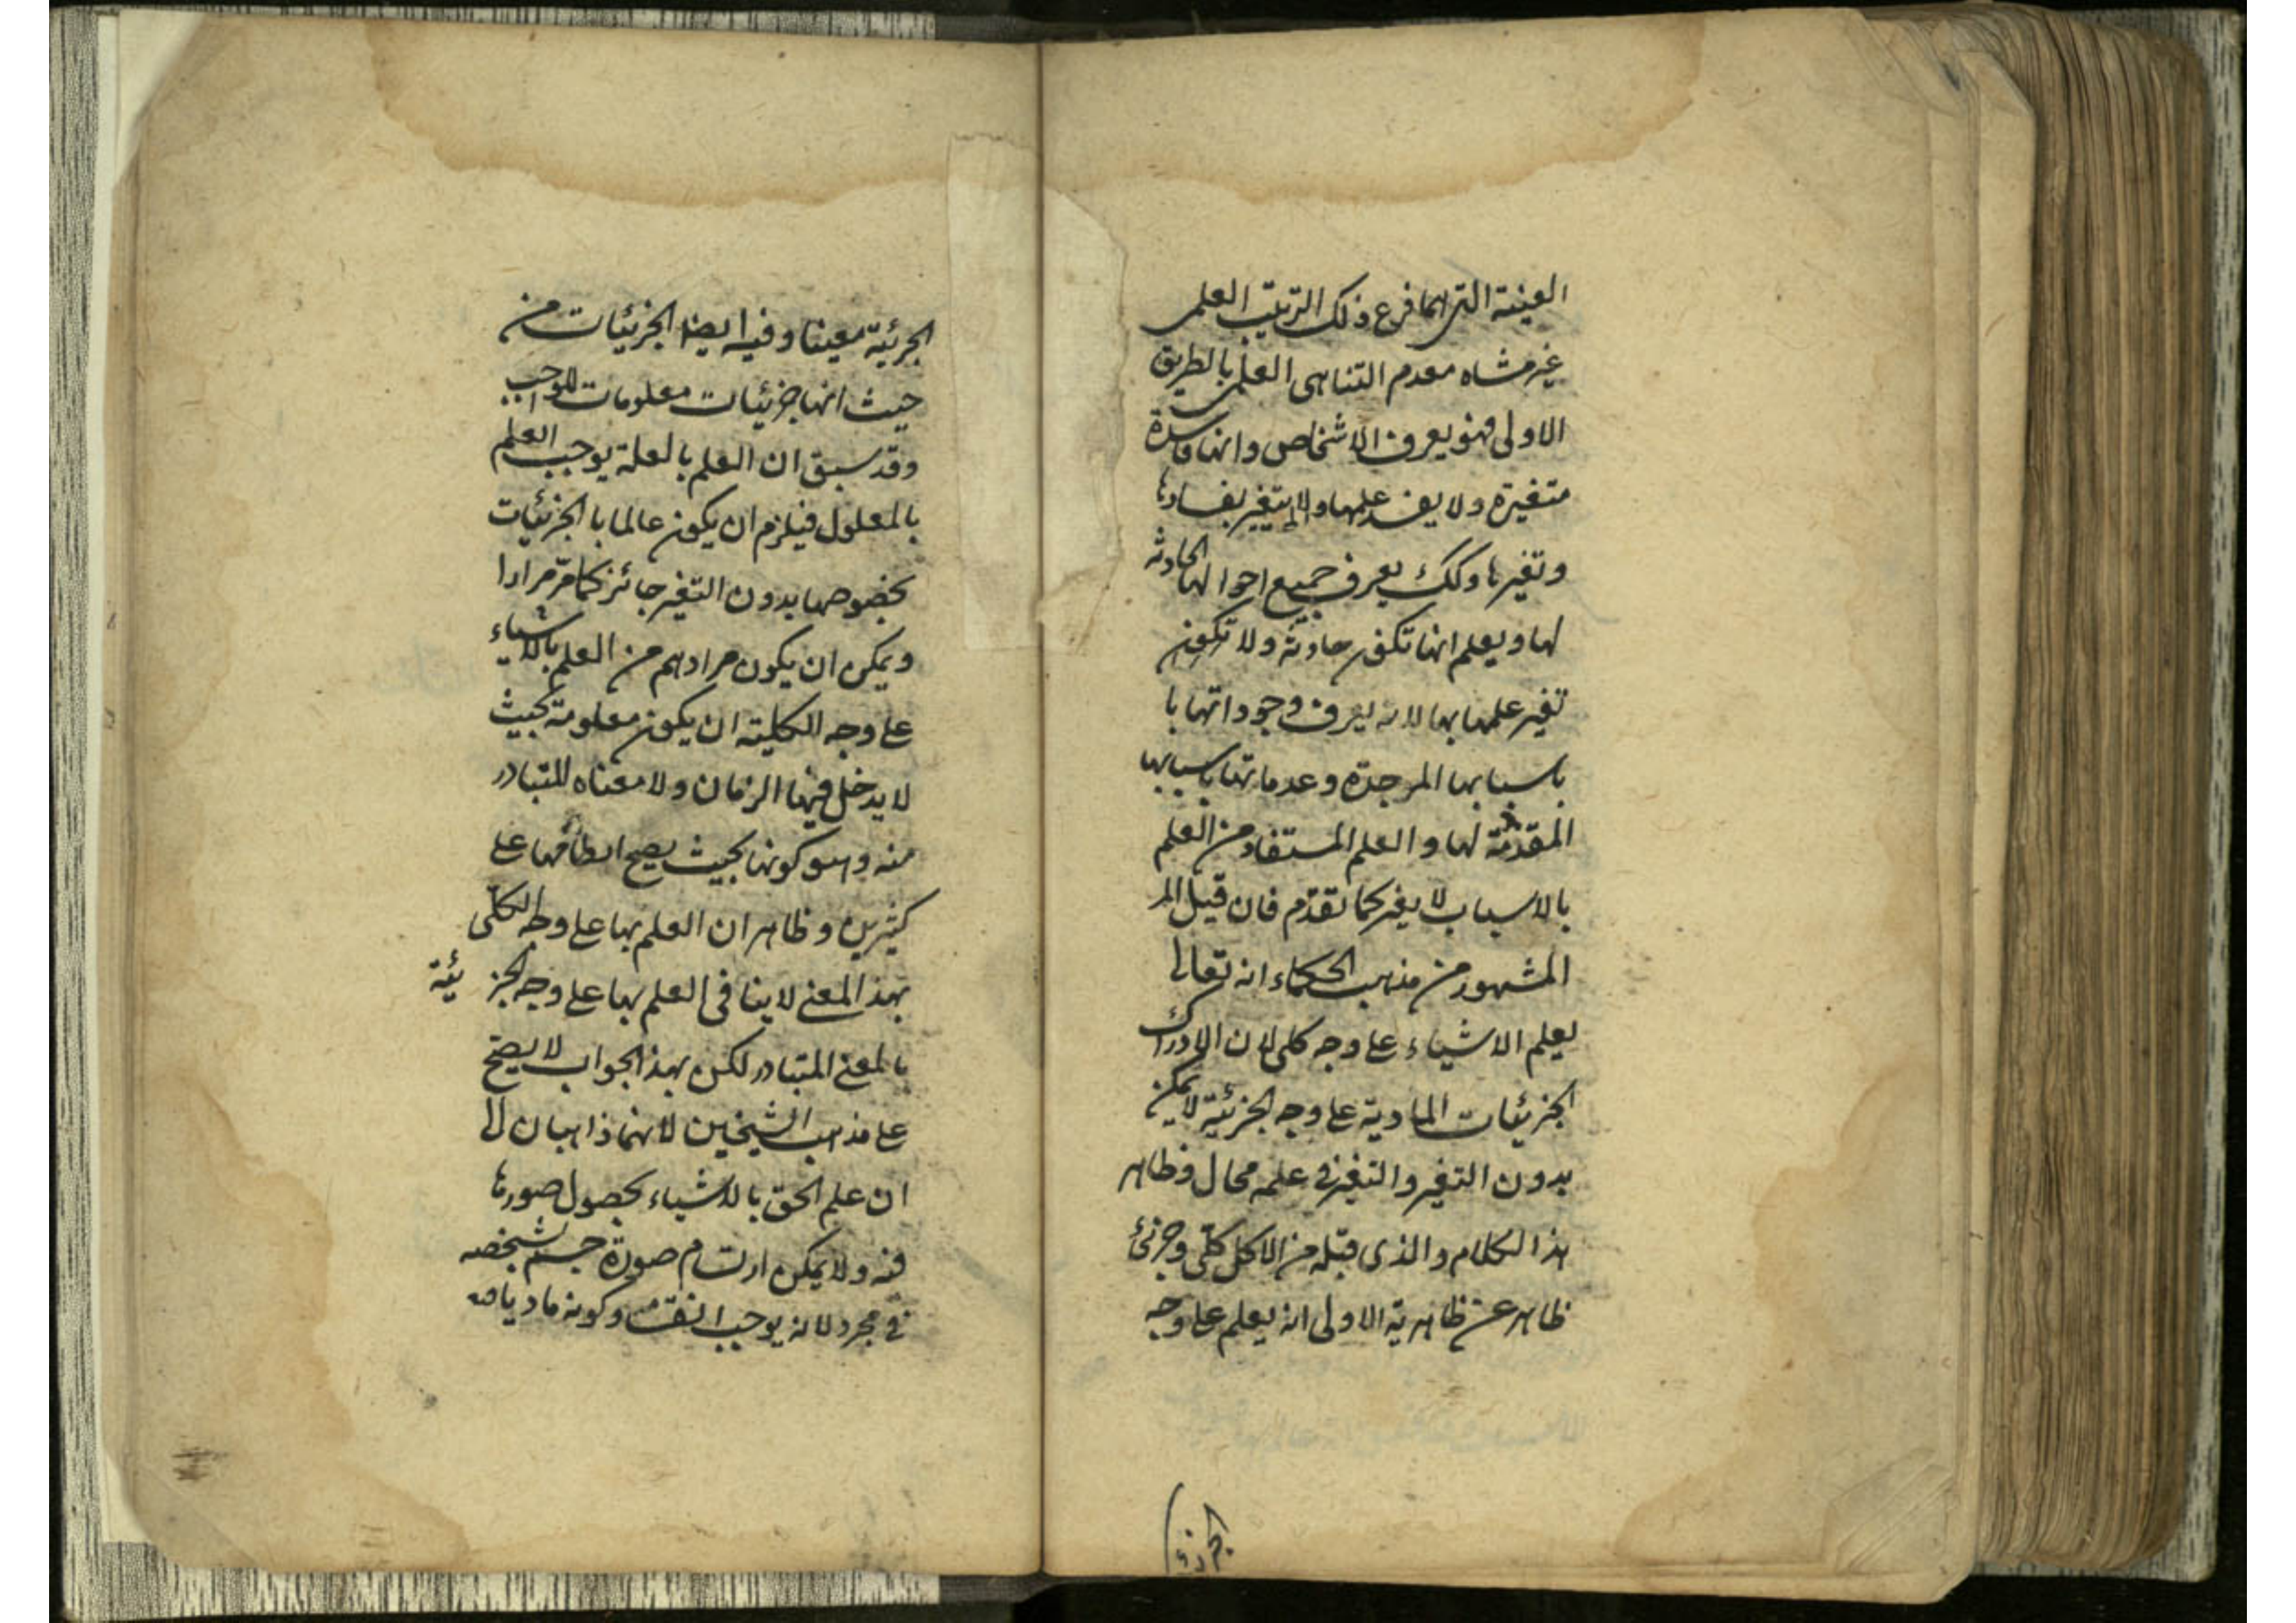 العينية التى انما فرع ذلك الترتيب العلمى
غير متناه معدم التناهى العلمى بالطريق
الاولى فهو يعرف الاشخاص وانها فاسدة
متغيرة ولا يفسد علمها ولا يتغير بفسادها
وتغيرها وكك يعرف جميع احوالها الحادثه
لها ويعلم انها تكون حادثة ولا تكون
تغير علمها بها لانه يعرف وجوداتها با
باسبابها الموجدة وعدماتها باسبابها
المقدمة لها والعلم المستفاد من العلم
بالاسباب لا يغير كما تقدّم فان قيل المر
المشهور من مذهب الحكماء انه تعالى
يعلم الاشياء على وجه كلى لان الادراك
الجزئيات المادية على وجه الجزئية لا يمكن
بدون التغير والتغير فى علمه محال وظاهر
هذا الكلام والذى قبله من الاكل كلّى وجزئى
ظاهر عن ظاهرية الاولى انه يعلم على وجه
الجزئية
الجزئية معينا وفيه ايضا الجزئيات من
حيث انها جزئيات معلومات للواجب
وقد سبق ان العلم بالعلة يوجب العلم
بالمعلول فيلزم ان يكون عالما با الجزئيات
بخصوصها بدون التغير جائز كما مرّ مرارا
ويمكن ان يكون مرادهم من العلم بالاشياء
على وجه الكلية ان يكون معلومة بحيث
لا يدخل فيها الزمان ولا معناه المتبادر
منه وهو كونها بحيث يصح انطباقها على
كثيرين وظاهر ان العلم بها على وجه الكلّى
بهذ المعنى لا ينافى العلم بها على وجه الجز ئية
بالمعنى المتبادر لكن بهذ الجواب لا يصحّ
على مذهب الشيخين لانهما ذاهبان الى
ان علم الحق بالاشياء بحصول صورها
فيه ولا يمكن ارتسام صورة جسم شخصه
فى مجرد لانه يوجب انقسامه وكونه ماديا مه